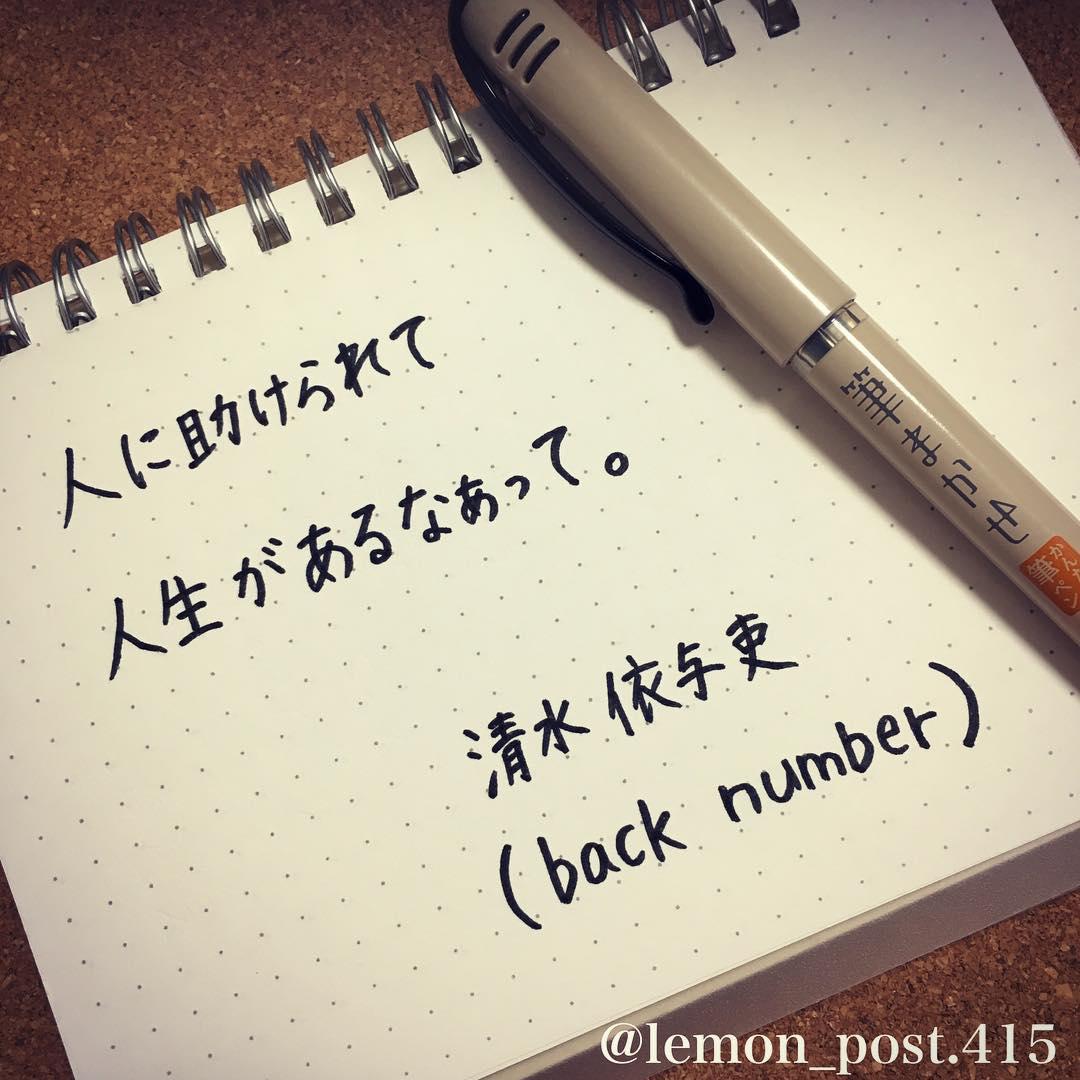 人に助けられて
人生があるなあって。
清水依与吏
(back number)
筆まかせ
かんたん
筆ペン
@lemon_post.415